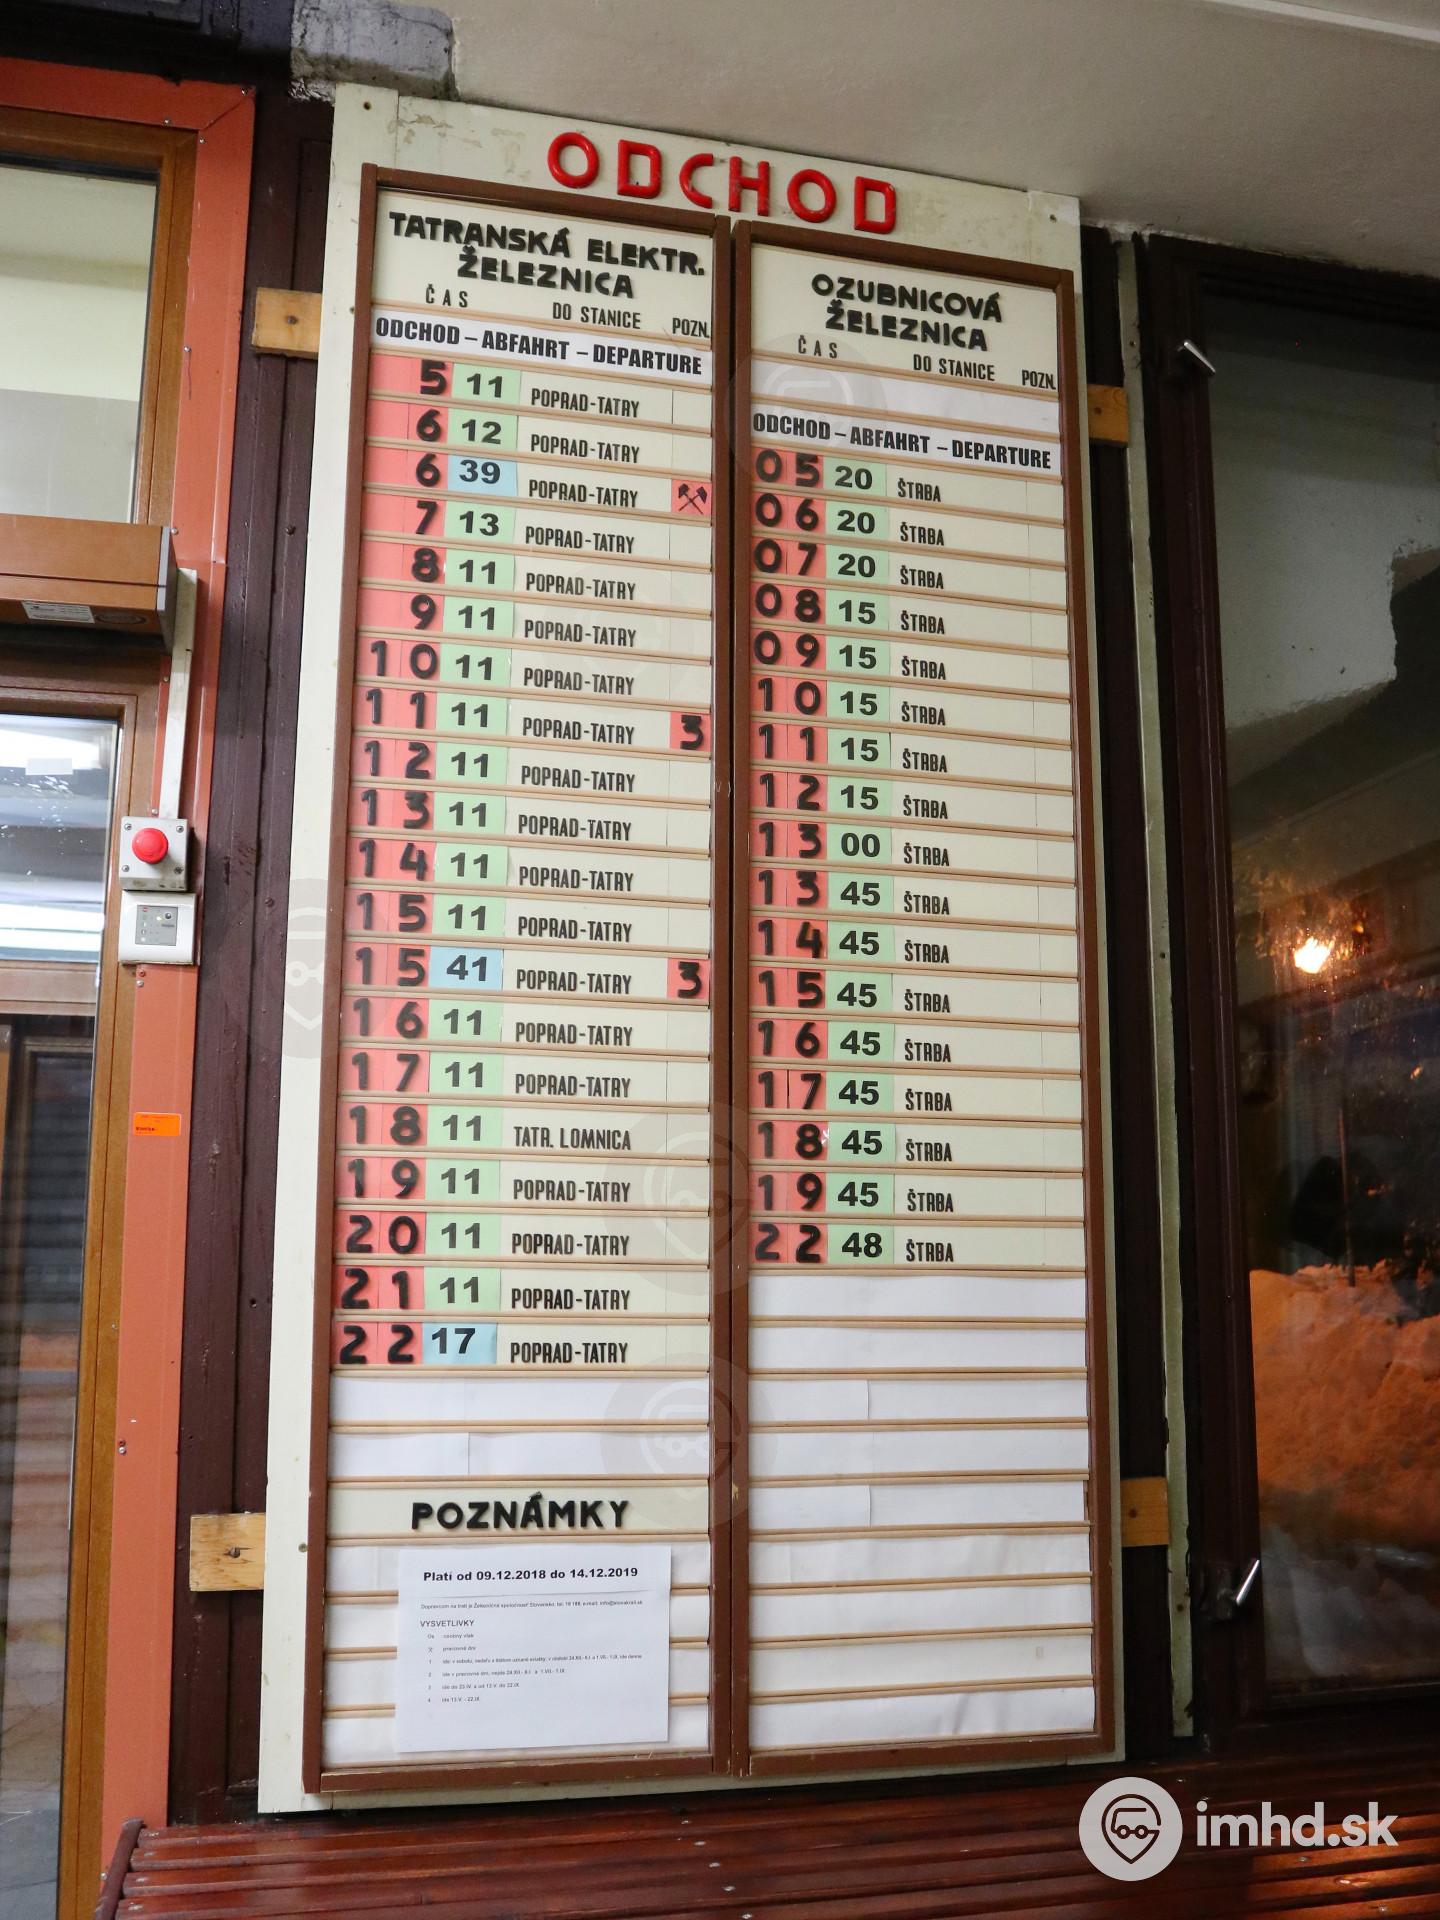 ODCHOD
TATRANSKÁ ELEKTR.
ŽELEZNICA
ČAS DO STANICE POZN.
ODCHOD – ABFAHRT – DEPARTURE
5 11 POPRAD-TATRY
6 12 POPRAD-TATRY
6 39 POPRAD-TATRY
7 13 POPRAD-TATRY
8 11 POPRAD-TATRY
9 11 POPRAD-TATRY
10 11 POPRAD-TATRY
11 11 POPRAD-TATRY 3
12 11 POPRAD-TATRY
13 11 POPRAD-TATRY
14 11 POPRAD-TATRY
15 11 POPRAD-TATRY
15 41 POPRAD-TATRY 3
16 11 POPRAD-TATRY
17 11 POPRAD-TATRY
18 11 TATR. LOMNICA
19 11 POPRAD-TATRY
20 11 POPRAD-TATRY
21 11 POPRAD-TATRY
22 17 POPRAD-TATRY
POZNÁMKY
Platí od 09.12.2018 do 14.12.2019
Dopravcom na trati je Železničná spoločnosť Slovensko, tel. 18 188, e-mail: info@slovakrail.sk
VYSVETLIVKY
Os osobný vlak
pracovné dni
1 ide v sobotu, nedeľu a štátom uznané sviatky, v období 24.XII.- 6.I. a 1.VII.- 1.IX. ide denne
2 ide v pracovné dni, nejde 24.XII.- 6.I. a 1.VII.- 1.IX.
3 ide do 23.IV. a od 13.V. do 22.IX.
4 ide 13.V. - 22.IX.
OZUBNICOVÁ
ŽELEZNICA
ČAS DO STANICE POZN.
ODCHOD – ABFAHRT – DEPARTURE
05 20 ŠTRBA
06 20 ŠTRBA
07 20 ŠTRBA
08 15 ŠTRBA
09 15 ŠTRBA
10 15 ŠTRBA
11 15 ŠTRBA
12 15 ŠTRBA
13 00 ŠTRBA
13 45 ŠTRBA
14 45 ŠTRBA
15 45 ŠTRBA
16 45 ŠTRBA
17 45 ŠTRBA
18 45 ŠTRBA
19 45 ŠTRBA
22 48 ŠTRBA
imhd.sk